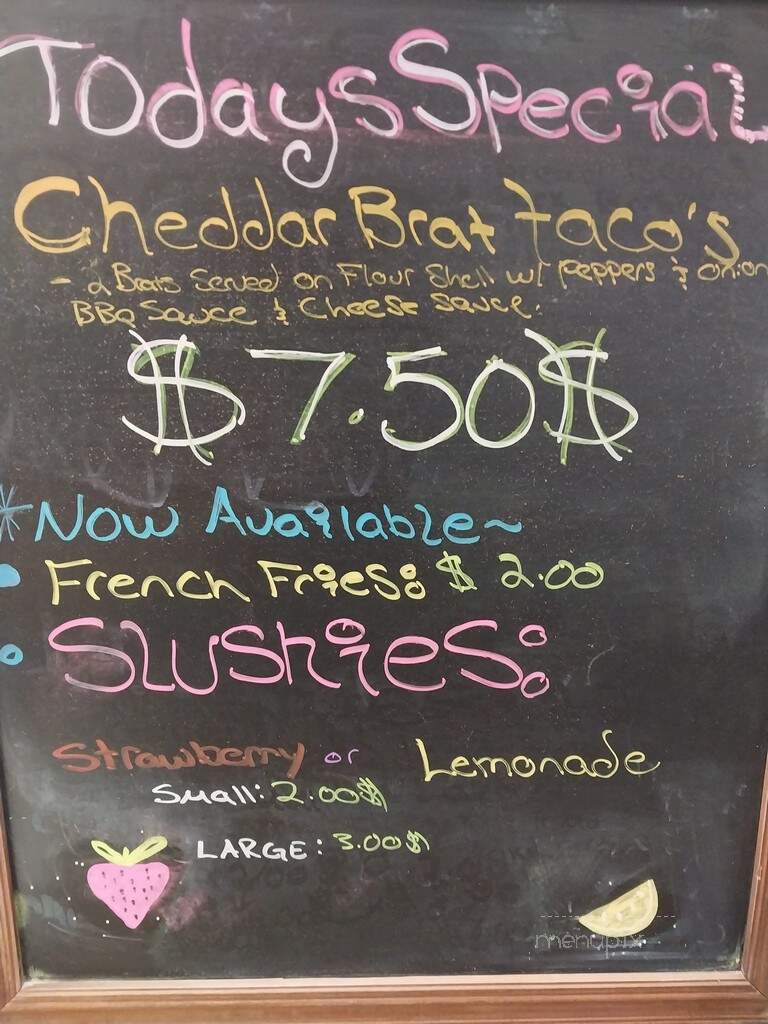 Todays Special
Cheddar Brat Taco's
- 2 Brats Served on Flour Shell w/ peppers & onion
BBQ Sauce & Cheese Sauce.
$7.50$
* Now Available~
• French Fries: $ 2.00
• Slushies:
Strawberry or Lemonade
Small: 2.00$
LARGE: 3.00$
menupix